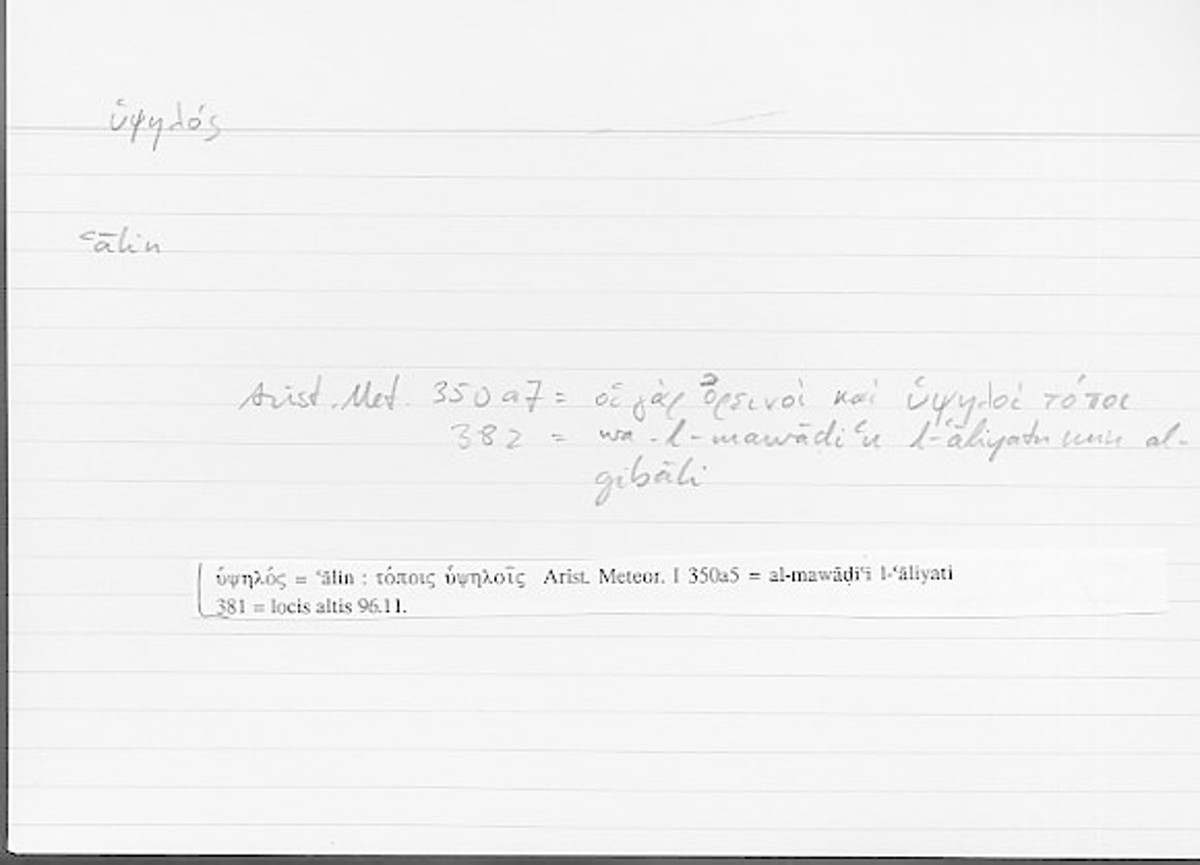 ὑψηλός
ʿālin
Arist. Met. 350a7 = οἱ γὰρ ὀρεινοὶ καὶ ὑψηλοὶ τόποι
382 = wa-l-mawāḍiʿu l-ʿāliyatu mina al-
gibāli
ὑψηλός = ʿālin : τόποις ὑψηλοῖς Arist. Meteor. I 350a5 = al-mawāḍiʿi l-ʿāliyati
381 = locis altis 96.11.